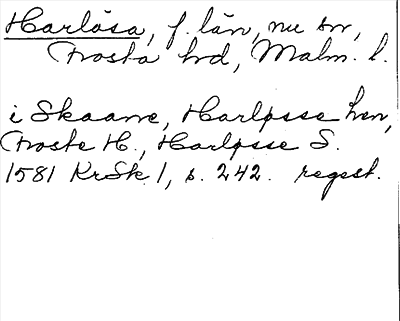 Harlösa, f. län, nu sn,
Frosta hd, Malm. l.
i Skaane, Harløsse len,
Froste H., Harløsse S.
1581 KrSk 1, s. 242. regest.